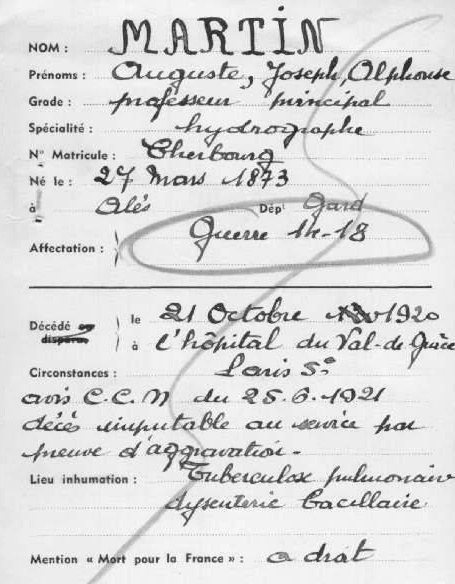 NOM : MARTIN
Prénoms : Auguste, Joseph, Alphonse
Grade : professeur principal
Spécialité : hydrographe
N° Matricule : Cherbourg
Né le : 27 Mars 1873
à Alés Dépt Gard
Affectation : Guerre 14-18
Décédé ou disparu le 21 Octobre 1920
à l'hôpital du Val-de-Grâce
Circonstances : Paris 5e
avis C.C.M du 25.6.1921
décès imputable au service par
preuve d'aggravation.
Lieu inhumation : Tuberculose pulmonaire
dysenterie bacillaire
Mention « Mort pour la France » : a droit